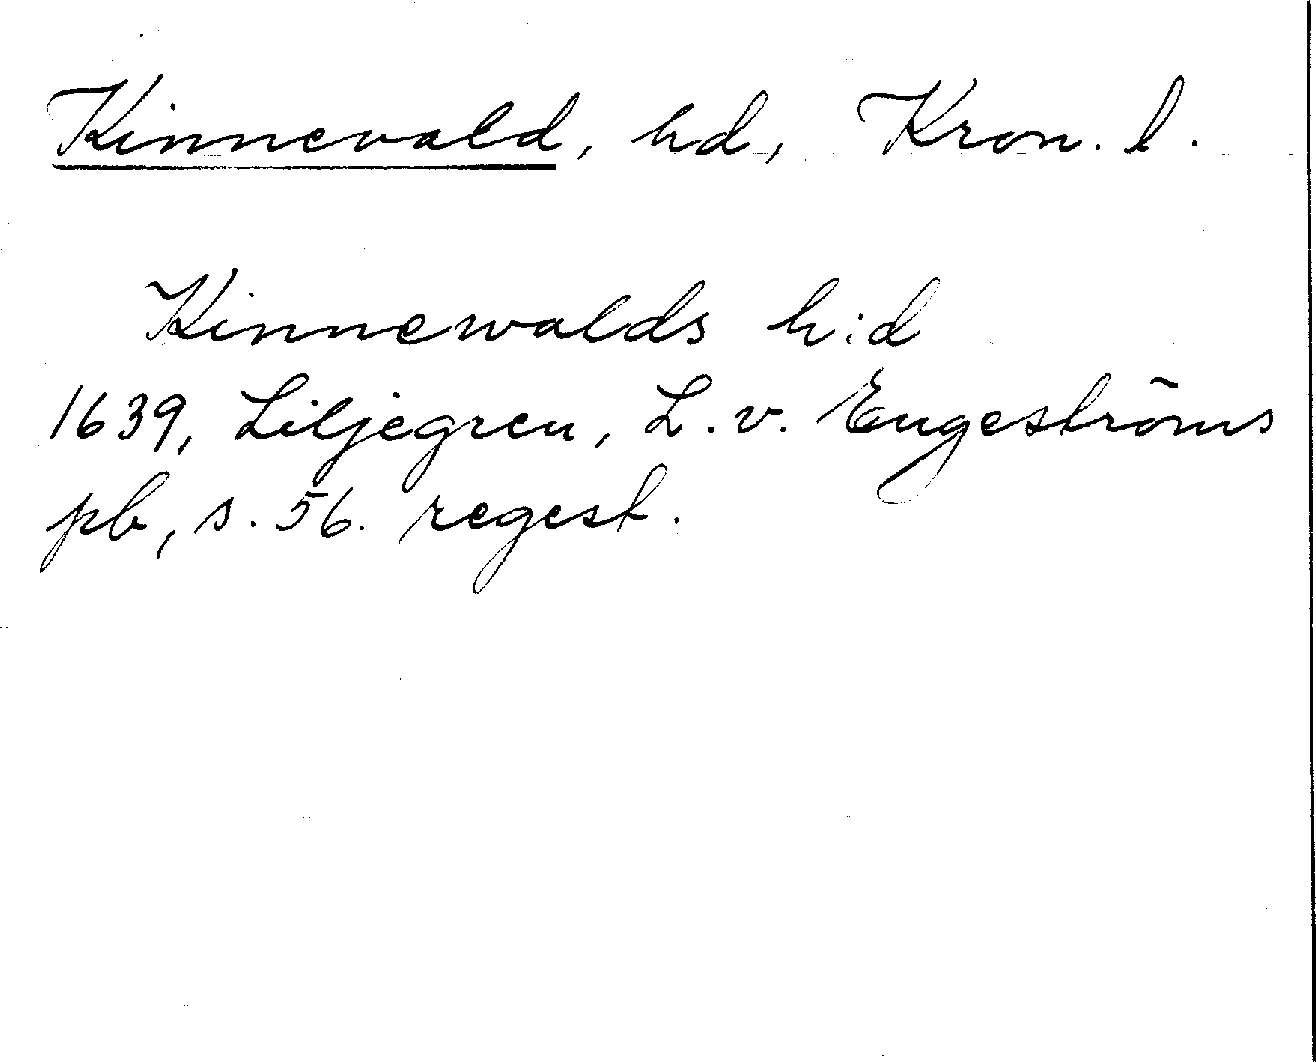 Kinnevald, hd, Kron. l.
Kinnewalds h:d
1639, Liljegren, L. v. Engeströms
pb, s. 56. regest.